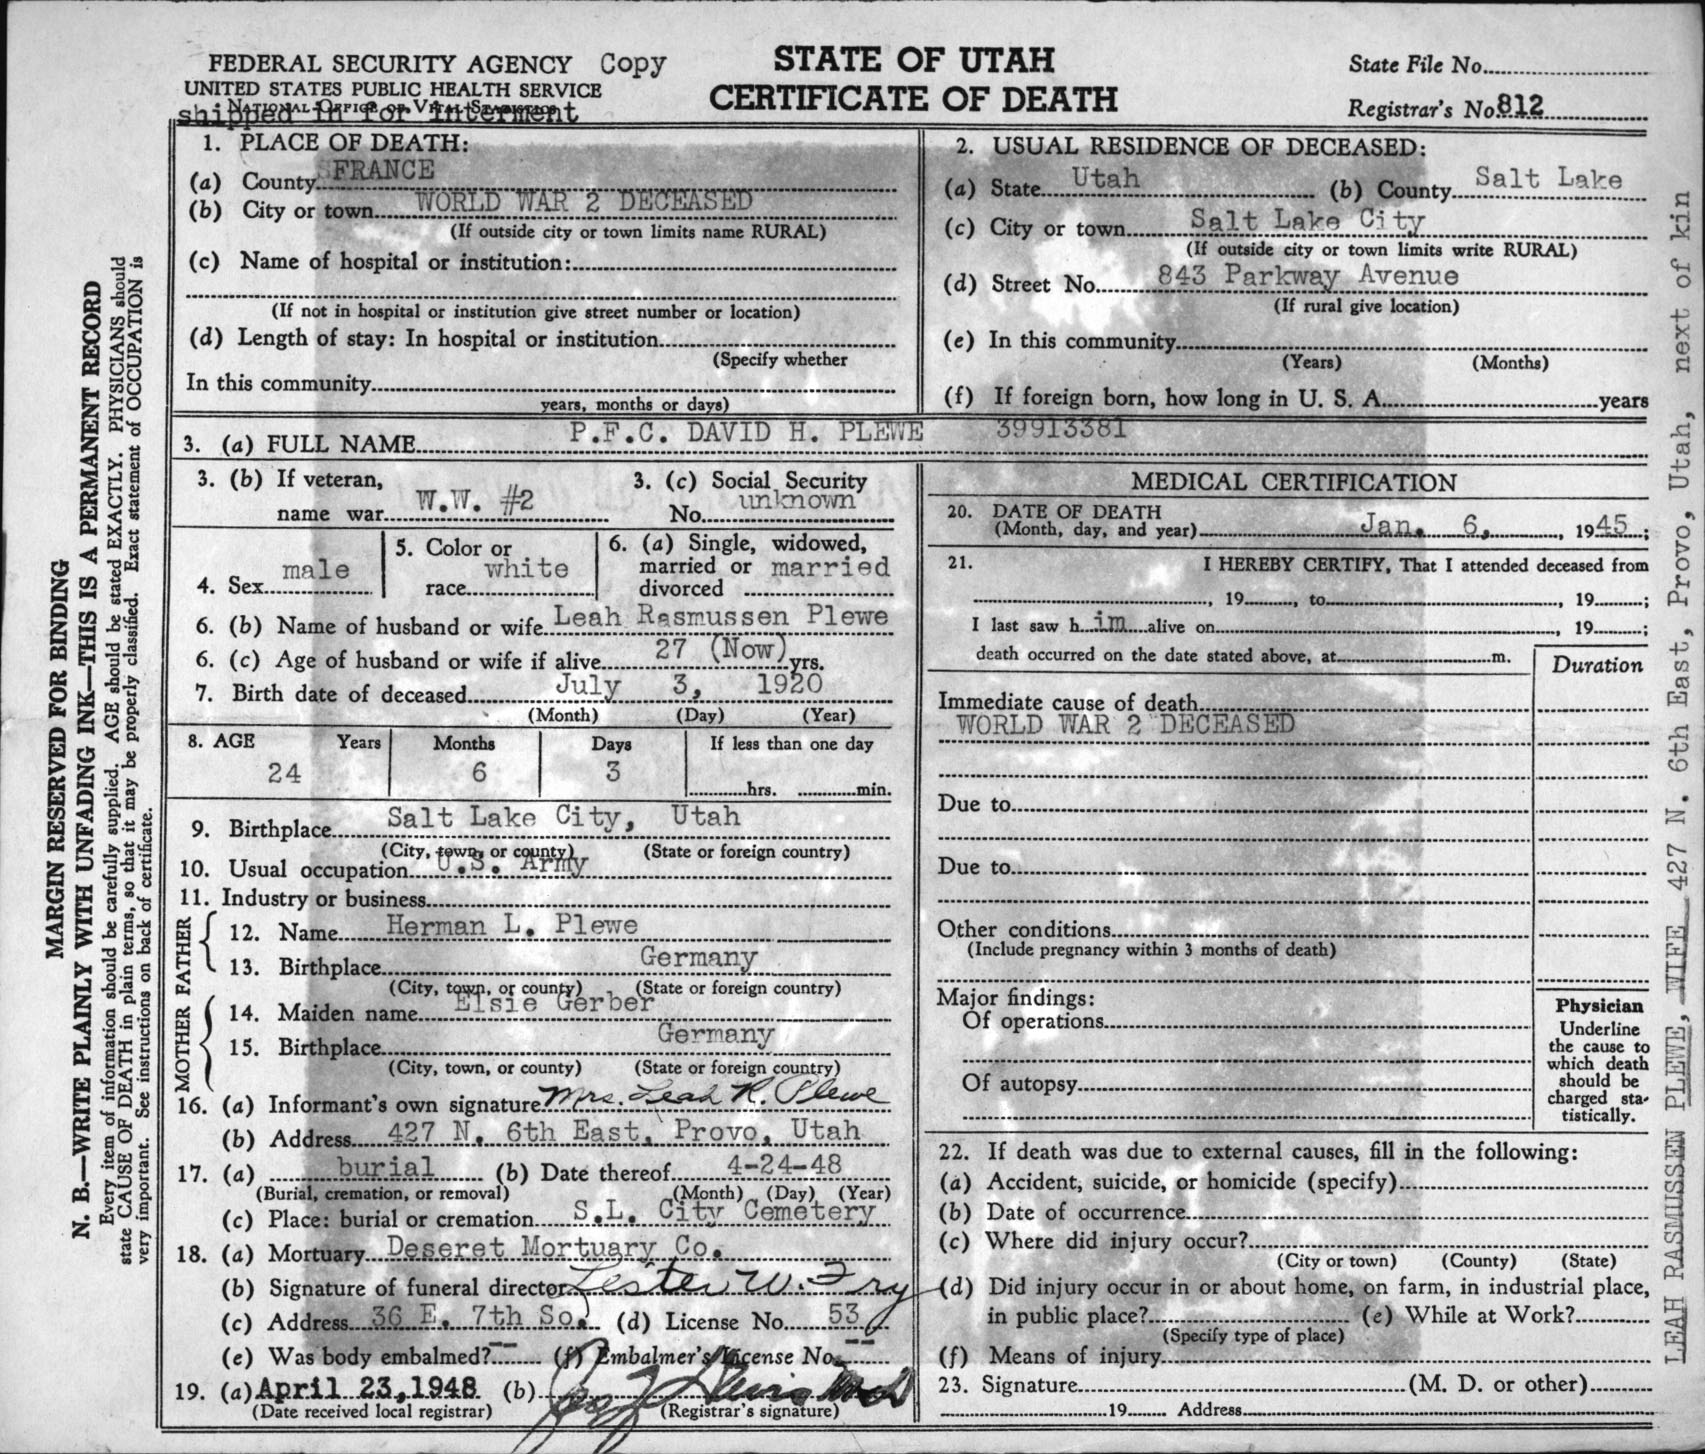 FEDERAL SECURITY AGENCY Copy
UNITED STATES PUBLIC HEALTH SERVICE
NATIONAL OFFICE OF VITAL STATISTICS
shipped in for interment
STATE OF UTAH
CERTIFICATE OF DEATH
State File No.
Registrar's No. 812
1. PLACE OF DEATH:
(a) County FRANCE
(b) City or town WORLD WAR 2 DECEASED
(If outside city or town limits name RURAL)
(c) Name of hospital or institution:
(If not in hospital or institution give street number or location)
(d) Length of stay: In hospital or institution
(Specify whether
In this community
years, months or days)
2. USUAL RESIDENCE OF DECEASED:
(a) State Utah (b) County Salt Lake
(c) City or town Salt Lake City
(If outside city or town limits write RURAL)
(d) Street No. 843 Parkway Avenue
(If rural give location)
(e) In this community
(Years) (Months)
(f) If foreign born, how long in U. S. A. years
3. (a) FULL NAME P.F.C. DAVID H. PLEWE 39913381
3. (b) If veteran,
name war W.W. #2
3. (c) Social Security
No. unknown
4. Sex male
5. Color or
race white
6. (a) Single, widowed,
married or married
divorced
6. (b) Name of husband or wife Leah Rasmussen Plewe
6. (c) Age of husband or wife if alive 27 (Now) yrs.
7. Birth date of deceased July 3, 1920
(Month) (Day) (Year)
8. AGE Years Months Days If less than one day
24 6 3
hrs. min.
9. Birthplace Salt Lake City, Utah
(City, town, or county) (State or foreign country)
10. Usual occupation U.S. Army
11. Industry or business
FATHER
12. Name Herman L. Plewe
13. Birthplace Germany
(City, town, or county) (State or foreign country)
MOTHER
14. Maiden name Elsie Gerber
15. Birthplace Germany
(City, town, or county) (State or foreign country)
16. (a) Informant's own signature Mrs. Leah R. Plewe
(b) Address 427 N. 6th East, Provo, Utah
17. (a) burial (b) Date thereof 4-24-48
(Burial, cremation, or removal) (Month) (Day) (Year)
(c) Place: burial or cremation S.L. City Cemetery
18. (a) Mortuary Deseret Mortuary Co.
(b) Signature of funeral director Lester W. Fry
(c) Address 36 E. 7th So. (d) License No. 53
(e) Was body embalmed? -- (f) Embalmer's License No. --
19. (a) April 23, 1948 (b)
(Date received local registrar) (Registrar's signature)
MEDICAL CERTIFICATION
20. DATE OF DEATH
(Month, day, and year) Jan. 6, , 1945;
21. I HEREBY CERTIFY, That I attended deceased from
, 19 , to , 19 ;
I last saw h im alive on , 19 ;
death occurred on the date stated above, at m.
Duration
Immediate cause of death
WORLD WAR 2 DECEASED
Due to
Due to
Other conditions
(Include pregnancy within 3 months of death)
Major findings:
Of operations
Of autopsy
Physician
Underline
the cause to
which death
should be
charged sta-
tistically.
22. If death was due to external causes, fill in the following:
(a) Accident, suicide, or homicide (specify)
(b) Date of occurrence
(c) Where did injury occur?
(City or town) (County) (State)
(d) Did injury occur in or about home, on farm, in industrial place,
in public place? (e) While at Work?
(Specify type of place)
(f) Means of injury
23. Signature (M. D. or other)
19 Address
MARGIN RESERVED FOR BINDING
N. B.—WRITE PLAINLY WITH UNFADING INK—THIS IS A PERMANENT RECORD
Every item of information should be carefully supplied. AGE should be stated EXACTLY. PHYSICIANS should
state CAUSE OF DEATH in plain terms, so that it may be properly classified. Exact statement of OCCUPATION is
very important. See instructions on back of certificate.
LEAH RASMUSSEN PLEWE, WIFE 427 N. 6th East, Provo, Utah, next of kin